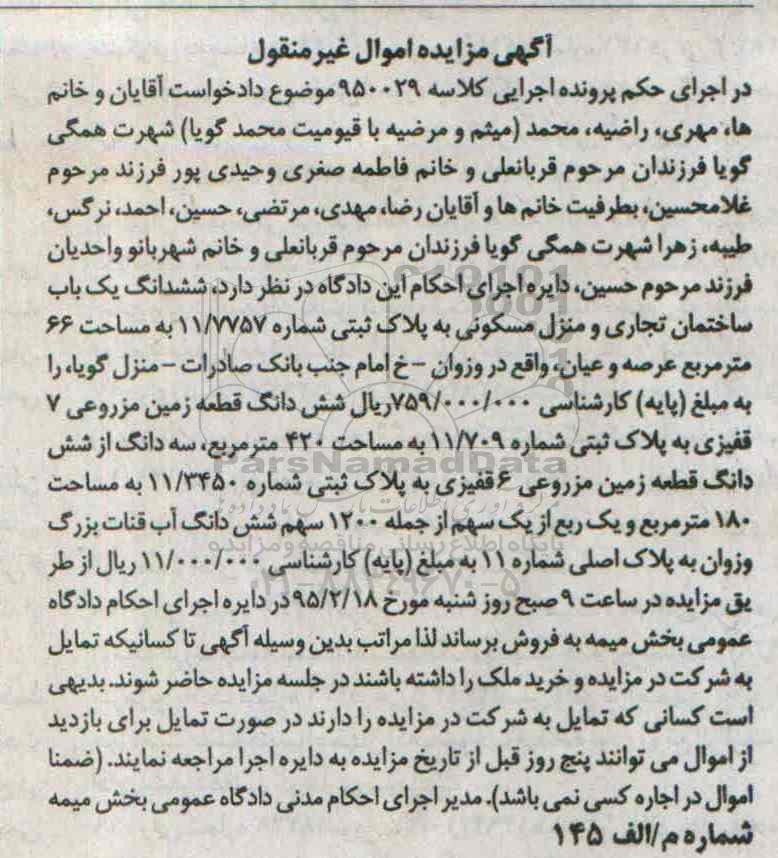 آگهی مزایده اموال غیرمنقول
در اجرای حکم پرونده اجرایی کلاسه ۹۵۰۰۲۹ موضوع دادخواست آقایان و خانم
ها، مهری، راضیه، محمد (میثم و مرضیه با قیومیت محمد گویا) شهرت همگی
گویا فرزندان مرحوم قربانعلی و خانم فاطمه صغری وحیدی پور فرزند مرحوم
غلامحسین، بطرفیت خانم ها و آقایان رضا، مهدی، مرتضی، حسین، احمد، نرگس،
طیبه، زهرا شهرت همگی گویا فرزندان مرحوم قربانعلی و خانم شهربانو واحدیان
فرزند مرحوم حسین، دایره اجرای احکام این دادگاه در نظر دارد، ششدانگ یک باب
ساختمان تجاری و منزل مسکونی به پلاک ثبتی شماره ۱۱/۷۷۵۷ به مساحت ۶۶
مترمربع عرصه و عیان، واقع در وزوان – خ امام جنب بانک صادرات – منزل گویا، را
به مبلغ (پایه) کارشناسی ۷۵۹/۰۰۰/۰۰۰ریال شش دانگ قطعه زمین مزروعی ۷
قفیزی به پلاک ثبتی شماره ۱۱/۷۰۹ به مساحت ۴۲۰ مترمربع، سه دانگ از شش
دانگ قطعه زمین مزروعی ۶قفیزی به پلاک ثبتی شماره ۱۱/۳۴۵۰ به مساحت
۱۸۰ مترمربع و یک ربع از یک سهم از جمله ۱۲۰۰ سهم شش دانگ آب قنات بزرگ
وزوان به پلاک اصلی شماره ۱۱ به مبلغ (پایه) کارشناسی ۱۱/۰۰۰/۰۰۰ ریال از طر
یق مزایده در ساعت ۹ صبح روز شنبه مورخ ۹۵/۲/۱۸ در دایره اجرای احکام دادگاه
عمومی بخش میمه به فروش برساند لذا مراتب بدین وسیله آگهی تا کسانیکه تمایل
به شرکت در مزایده و خرید ملک را داشته باشند در جلسه مزایده حاضر شوند. بدیهی
است کسانی که تمایل به شرکت در مزایده را دارند در صورت تمایل برای بازدید
از اموال می توانند پنج روز قبل از تاریخ مزایده به دایره اجرا مراجعه نمایند. (ضمنا
اموال در اجاره کسی نمی باشد). مدیر اجرای احکام مدنی دادگاه عمومی بخش میمه
شماره م/الف ۱۴۵
ParsNamadData
پایگاه اطلاع رسانی مناقصه و مزایده